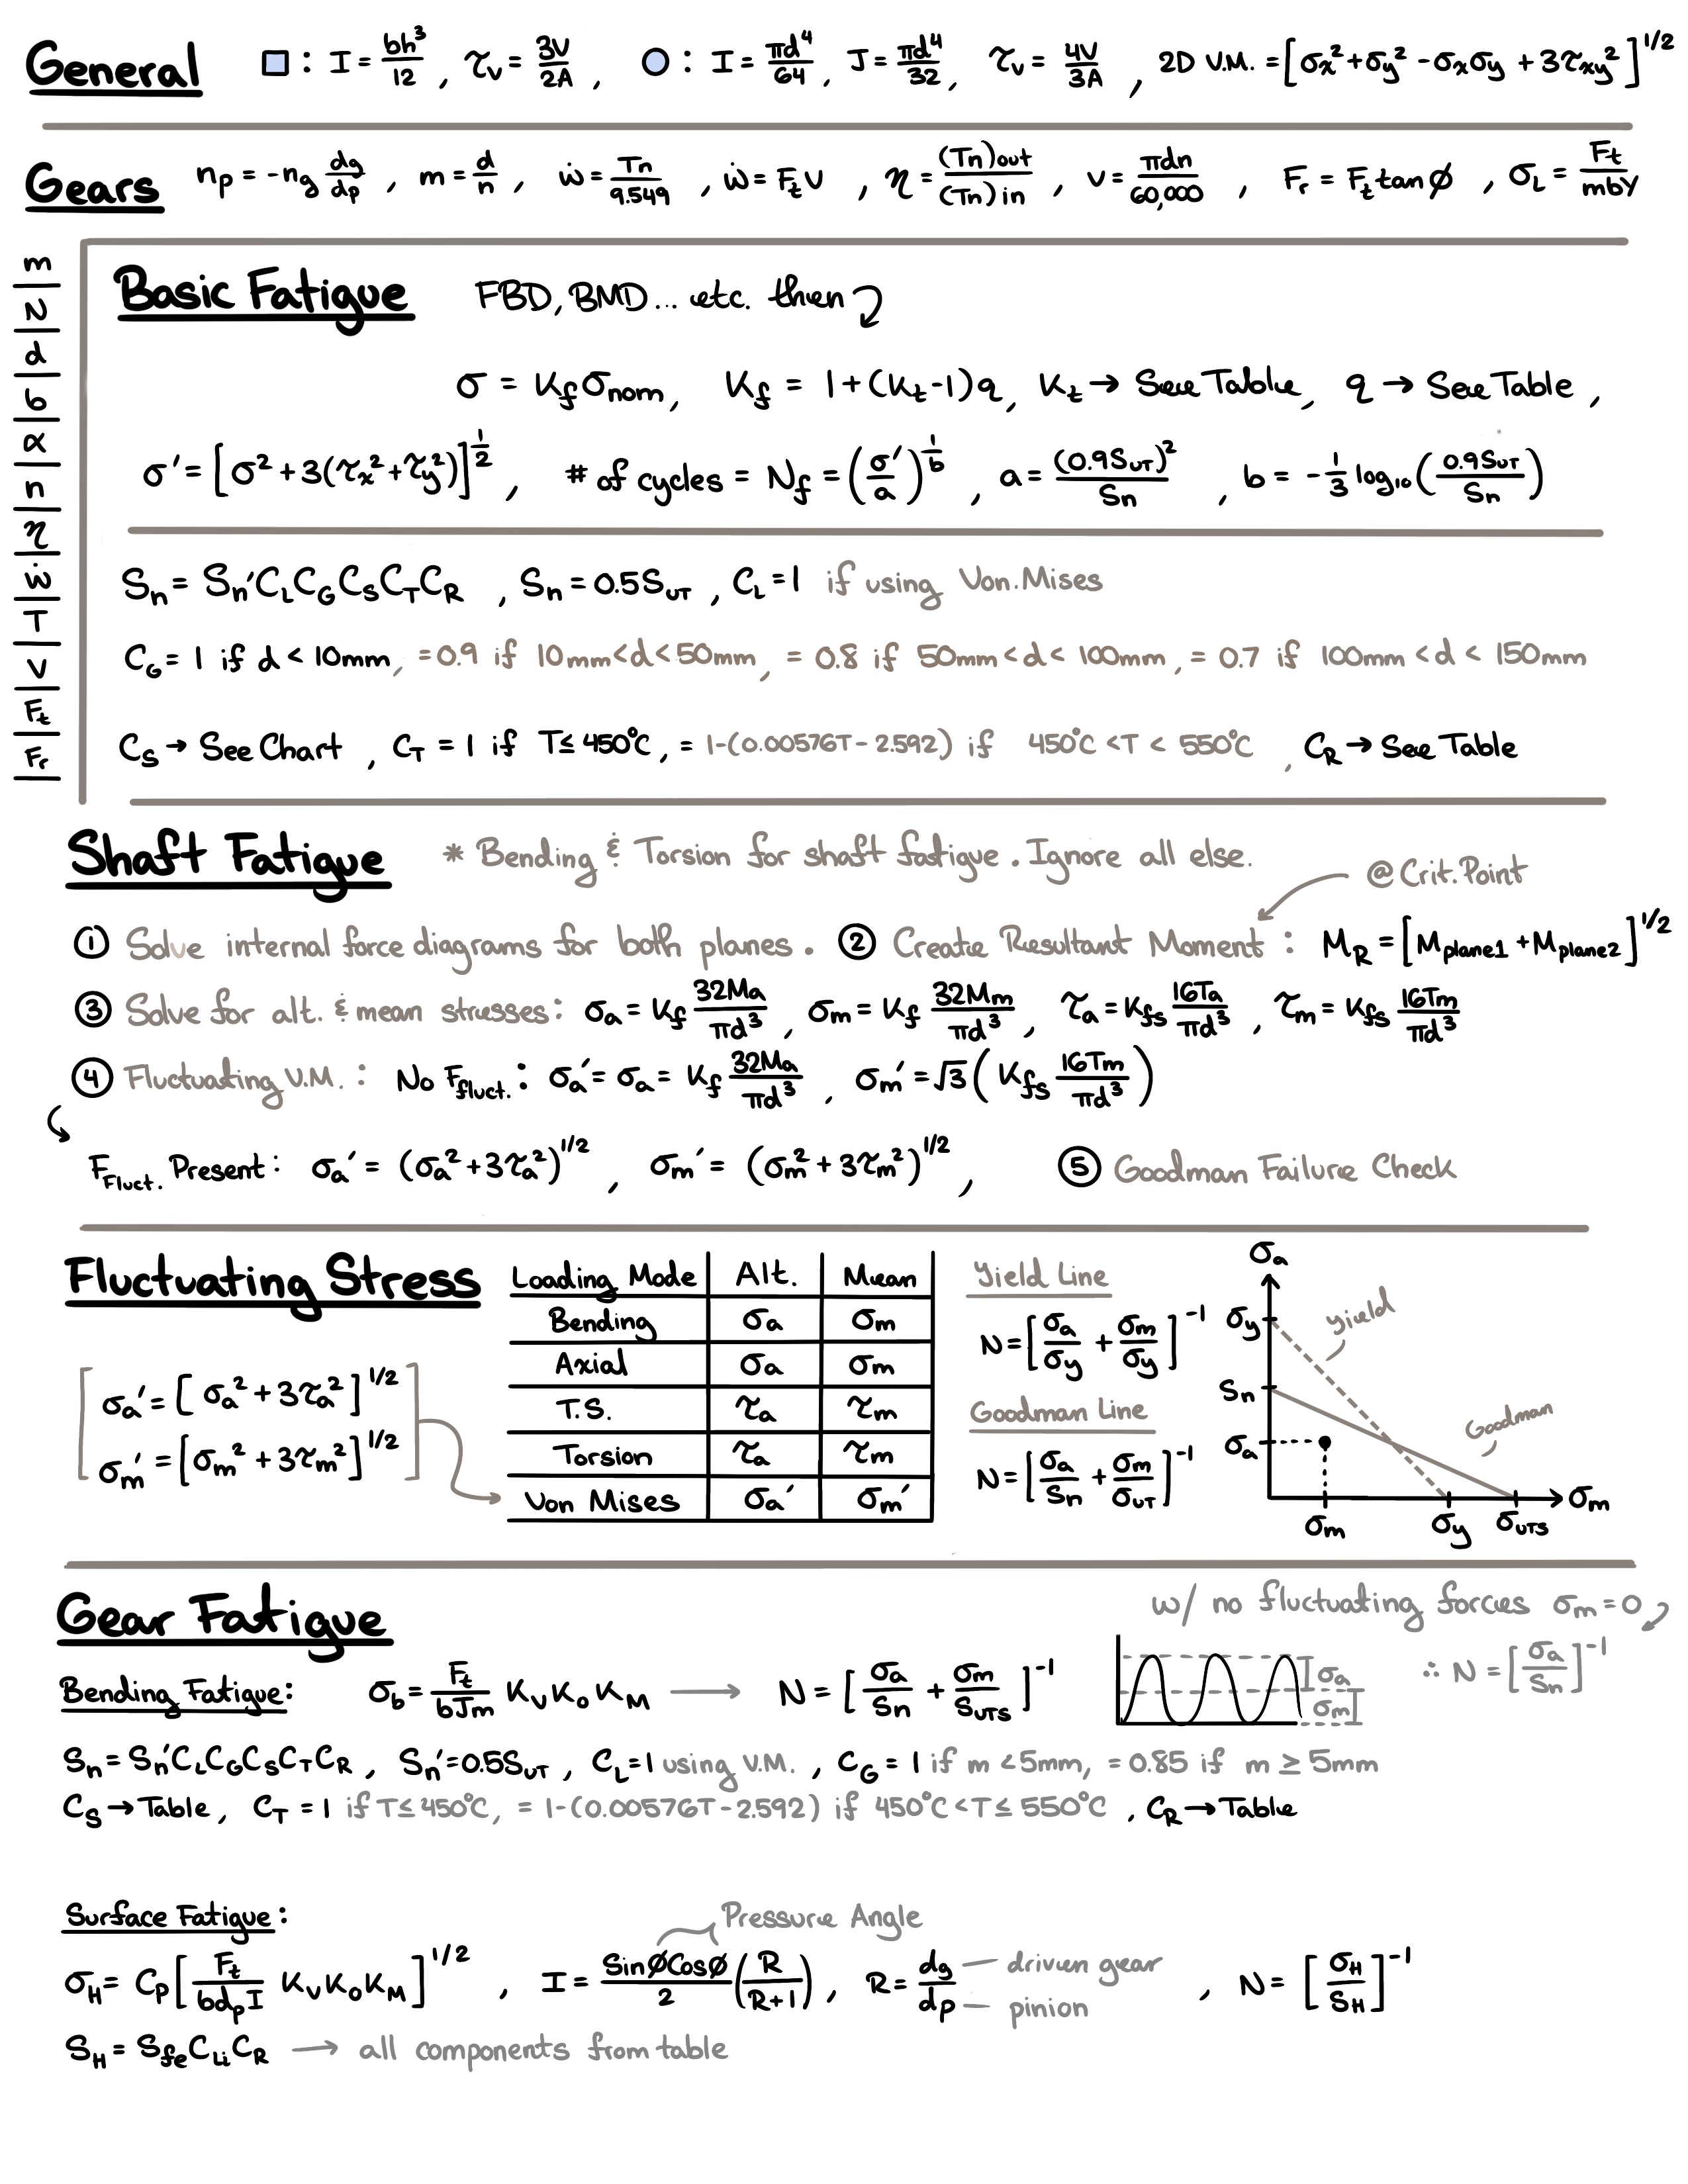 General □ : I = bh³/12 , τᵥ = 3V/2A , ○ : I = πd⁴/64 , J = πd⁴/32 , τᵥ = 4V/3A , 2D V.M. = [σx² + σy² - σxσy + 3τxy²]^1/2
Gears n_p = -n_g d_g/d_p , m = d/n , ẇ = Tn/9.549 , ẇ = F_t V , η = (Tn)out/(Tn)in , v = πdn/60,000 , F_r = F_t tan Ø , σ_L = F_t/mbY
m
N
d
b
α
n
η
ẇ
T
V
F_t
F_r
Basic Fatigue FBD, BMD... etc. then
σ = K_f σ_nom , K_f = 1+(K_t-1)q , K_t → See Table , q → See Table ,
σ' = [σ² + 3(τx² + τy²)]^1/2 , # of cycles = N_f = (σ'/a)^1/b , a = (0.9S_UT)²/S_n , b = -1/3 log₁₀(0.9S_UT/S_n)
S_n = S_n'C_L C_G C_S C_T C_R , S_n = 0.5S_UT , C_L = 1 if using Von.Mises
C_G = 1 if d < 10mm, = 0.9 if 10mm<d<50mm, = 0.8 if 50mm<d<100mm, = 0.7 if 100mm<d<150mm
C_S → See Chart , C_T = 1 if T≤450°C, = 1-(0.00576T-2.592) if 450°C<T<550°C , C_R → See Table
Shaft Fatigue * Bending & Torsion for shaft fatigue. Ignore all else.
@ Crit. Point
① Solve internal force diagrams for both planes. ② Create Resultant Moment : M_R = [M_plane1 + M_plane2]^1/2
③ Solve for alt. & mean stresses: σ_a = K_f 32Ma/πd³ , σ_m = K_f 32Mm/πd³ , τ_a = K_fs 16Ta/πd³ , τ_m = K_fs 16Tm/πd³
④ Fluctuating V.M. : No F_fluct. : σ_a' = σ_a = K_f 32Ma/πd³ , σ_m' = √3(K_fs 16Tm/πd³)
F_Fluct. Present : σ_a' = (σ_a² + 3τ_a²)^1/2 , σ_m' = (σ_m² + 3τ_m²)^1/2 , ⑤ Goodman Failure Check
Fluctuating Stress
[σ_a' = [σ_a² + 3τ_a²]^1/2
σ_m' = [σ_m² + 3τ_m²]^1/2]
Loading Mode Alt. Mean
Bending σ_a σ_m
Axial σ_a σ_m
T.S. τ_a τ_m
Torsion τ_a τ_m
Von Mises σ_a' σ_m'
Yield Line
N = [σ_a/σ_y + σ_m/σ_y]^-1
Goodman Line
N = [σ_a/S_n + σ_m/σ_UT]^-1
σ_a
σ_y
yield
S_n
Goodman
σ_a
σ_m
σ_m σ_y σ_UTS
Gear Fatigue
w/ no fluctuating forces σ_m = 0
∴ N = [σ_a/S_n]^-1
Bending Fatigue: σ_b = F_t/bJm K_V K_O K_M → N = [σ_a/S_n + σ_m/S_UTS]^-1
σ_a
σ_m
S_n = S_n'C_L C_G C_S C_T C_R , S_n' = 0.5S_UT , C_L = 1 using V.M. , C_G = 1 if m<5mm, = 0.85 if m ≥ 5mm
C_S → Table , C_T = 1 if T≤450°C, = 1-(0.00576T-2.592) if 450°C<T≤550°C , C_R → Table
Surface Fatigue :
Pressure Angle
σ_H = C_p [F_t/bd_pI K_V K_O K_M]^1/2 , I = SinØCosØ/2 (R/R+1) , R = d_g/d_p , N = [σ_H/S_H]^-1
driven gear
pinion
S_H = S_fe C_Li C_R → all components from table